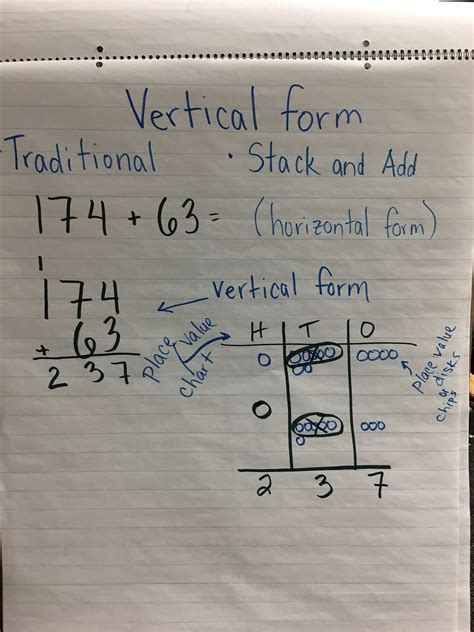 Vertical form
· Traditional · Stack and Add
174 + 63 = (horizontal form)
1
174
+ 63
237
vertical form
Place Value
chart
H T O
2 3 7
Place value
chips
or discs